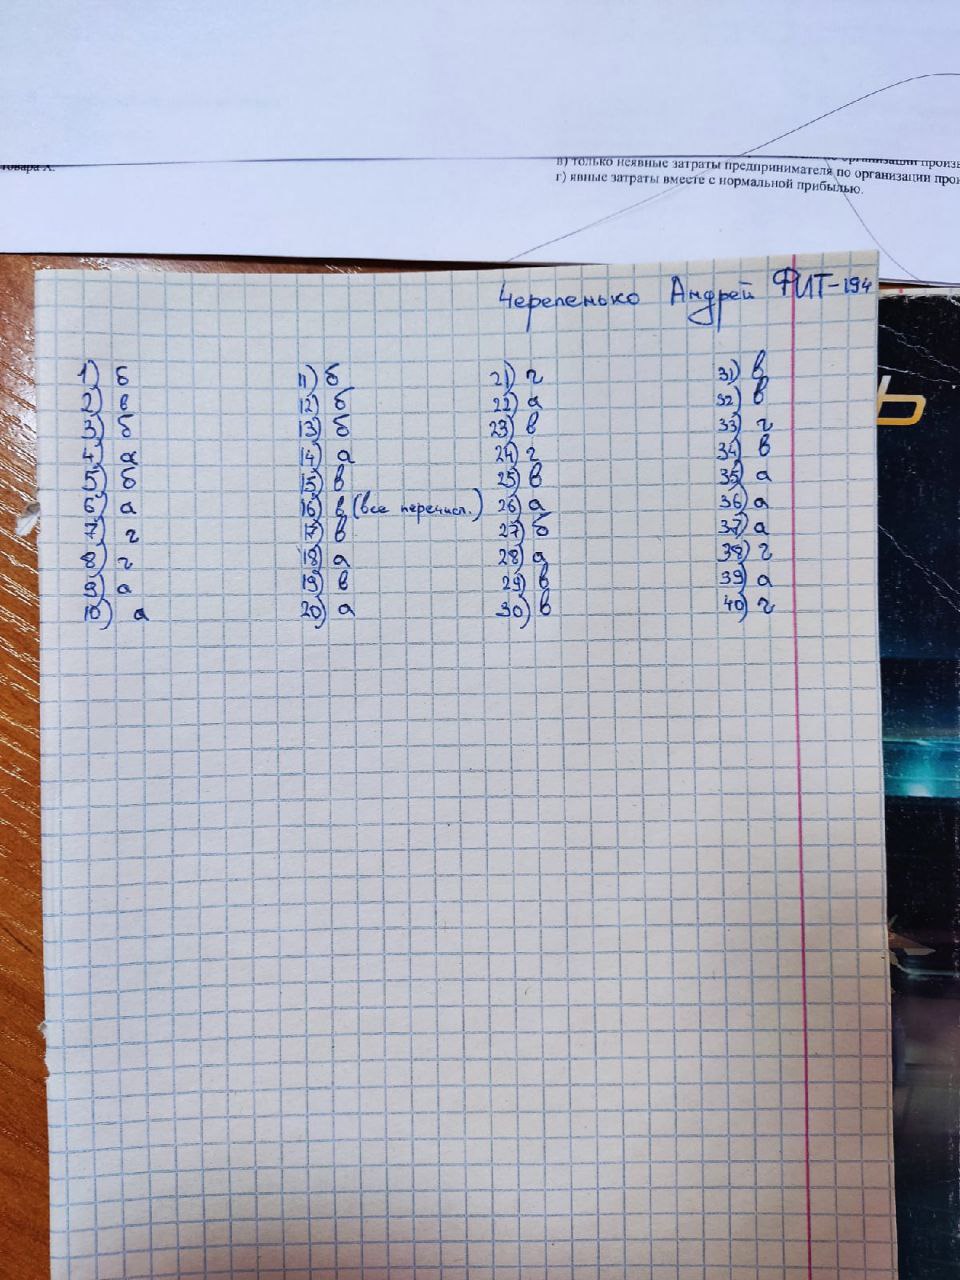 товара X.
в) только неявные затраты предпринимателя по организации
г) явные затраты вместе с нормальной прибылью.
Черепенько Андрей ФИТ-194
1) б
2) в
3) б
4) а
5) б
6) а
7) г
8) г
9) а
10) а
11) б
12) б
13) б
14) а
15) в
16) в (все перечисл.)
17) в
18) а
19) в
20) а
21) г
22) а
23) в
24) г
25) в
26) а
27) б
28) а
29) в
30) в
31) в
32) в
33) г
34) в
35) а
36) а
37) а
38) г
39) а
40) г